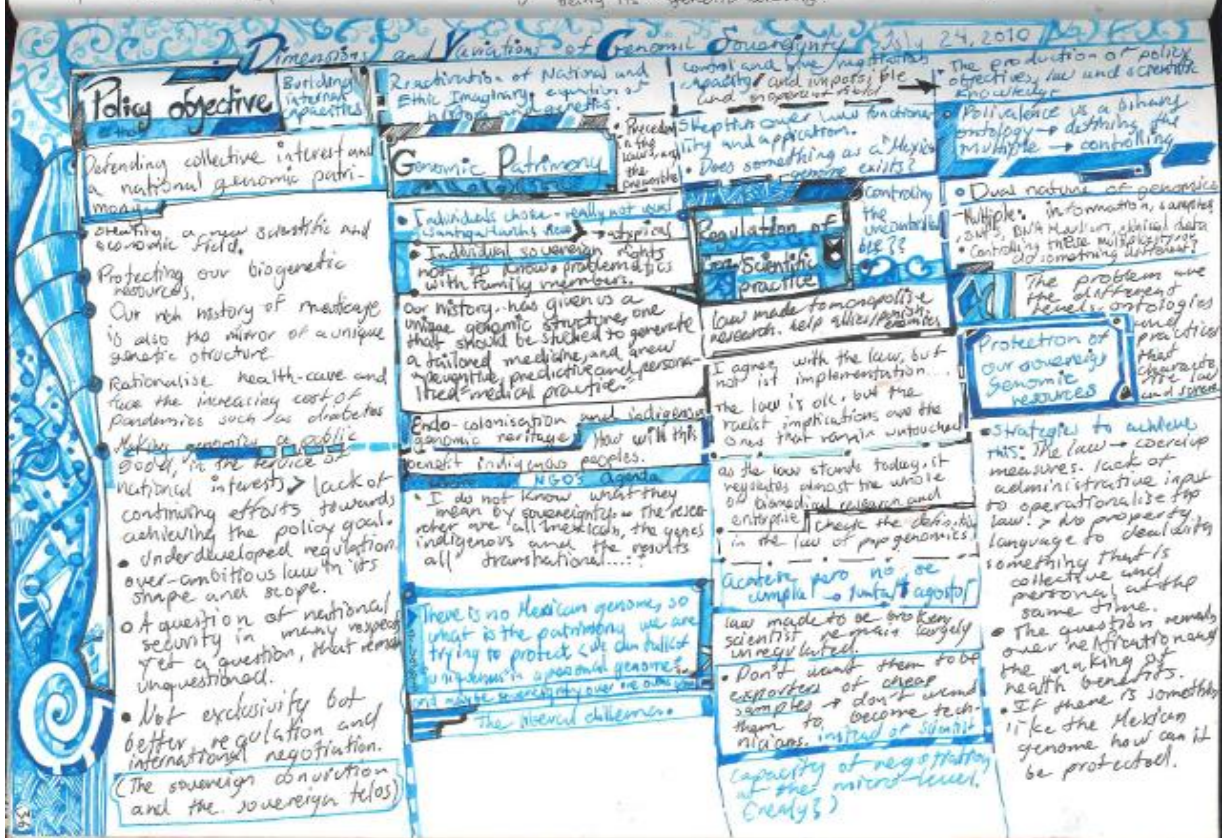 being its genetic
Dimensions and Variations of Genomic Sovereignty July 24, 2010
Policy objective
Building
internal
capacities
Defending collective interest and
a national genomic patri-
mony.
Creating a new scientific and
economic field.
Protecting our biogenetic
resources.
Our rich history of mestizaje
is also the mirror of a unique
genetic structure
Rationalise health-care and
face the increasing cost of
pandemics such as diabetes
Making genomics a public
good, in the service of
national interests > lack of
continuing efforts towards
achieving the policy goal.
• Underdeveloped regulation
over-ambitious law in its
shape and scope.
• A question of national
security in many respects
yet a question, that remain
unquestioned.
• Not exclusivity but
better regulation and
international negotiation.
(The sovereign conviction
and the sovereign telos)
36
Reactivation of National and
Ethic Imaginary, equation of
history and genetics.
Genomic Patrimony
• Precedent
in the
law, and
the
preamble
• Individuals choice - really not used
→ atypical
• Individual sovereign rights
not to know. problematics
with family members.
Our history has given us a
unique genomic structure, one
that should be studied to generate
a tailored medicine, and a new
"preventive, predictive and persona-
lized medical practice."
Endo-colonisation and indigenous
genomic heritage. How will this
benefit indigenous peoples.
NGO'S agenda
• I do not know what they
mean by sovereignty. The resear-
cher are all mexican, the genes
indigenous and the results
all transnational....?
There is no Mexican genome, so
what is the patrimony we are
trying to protect. we can talk of
uniqueness in a personal genome?
and maybe sovereignty over one owns
The liberal dilemma.
control and give registration
capacity and impossible
Skeptics over law's functiona-
lity and application.
• Does something as a Mexican
genome exists?
Regulation of
Scientific
practice
Controling
the
uncontrolla
ble??
law made to monopolise
research. help allies/punish enemies
I agree with the law, but
not ist implementation...
The law is ok, but the
racist implications are the
ones that remain untouched
as the law stands today, it
regulates almost the whole
of biomedical research and
enterprise. check the definition
in the law of pop genomics.
acatese pero no se
cumpla → Junta agosto
law made to be broken
scientist remain largely
unregulated.
• Don't want them to be
exporters of cheap
samples → don't want
them to become tech-
nicians. instead of scientist
capacity of negotiation
at the micro-level.
(ready?)
• The production of policy
objectives, law and scientific
knowledge
• Polivalence vs a binary
ontology → defining the
multiple → controlling
• Dual nature of genomics
- Multiple: information, samples
SNPs, DNA clinical data
• Controling these multiplicity
do something different
The problem are
the different
level, ontologies
and
practices
that
characte.
the law
and
Protection of
our sovereign
Genomic
resources
• Strategies to achieve
this: The law → coercive
measures. lack of
administrative input
to operationalise the
law. > No property
language to deal with
something that is
collective and
personal at the
same time.
• The question remains
over reification and
the making of
health benefits.
• If there is something
like the Mexican
genome how can it
be protected.